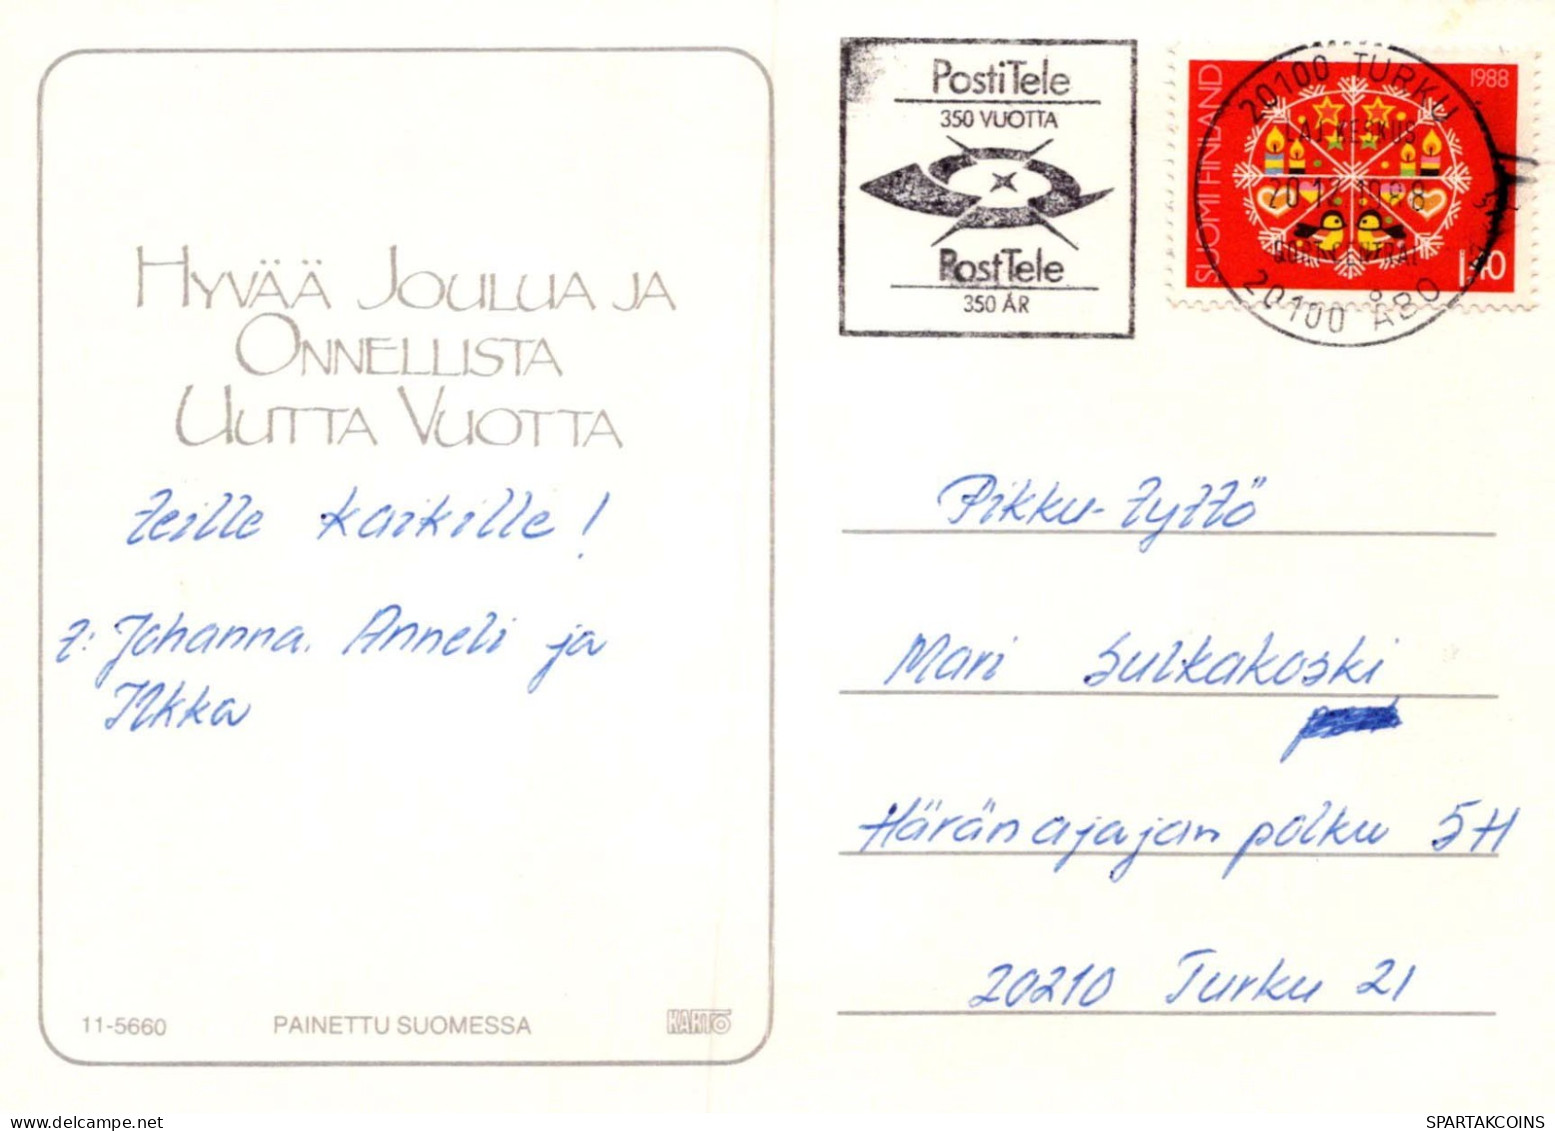 HYVÄÄ JOULUA JA
ONNELLISTA
UUTTA VUOTTA
teille kaikille!
t: Johanna. Anneli ja
Ilkka
11-5660 PAINETTU SUOMESSA KARTO
PostiTele
350 VUOTTA
PostTele
350 ÅR
SUOMI FINLAND
1988
1,40
20100 TURKU
LAJ.KESKUS
20.12.1988
20100 ÅBO
Pikku-tyttö
Mari Sulkakoski
Häränajajan polku 5H
20210 Turku 21
SPARTAKCOINS